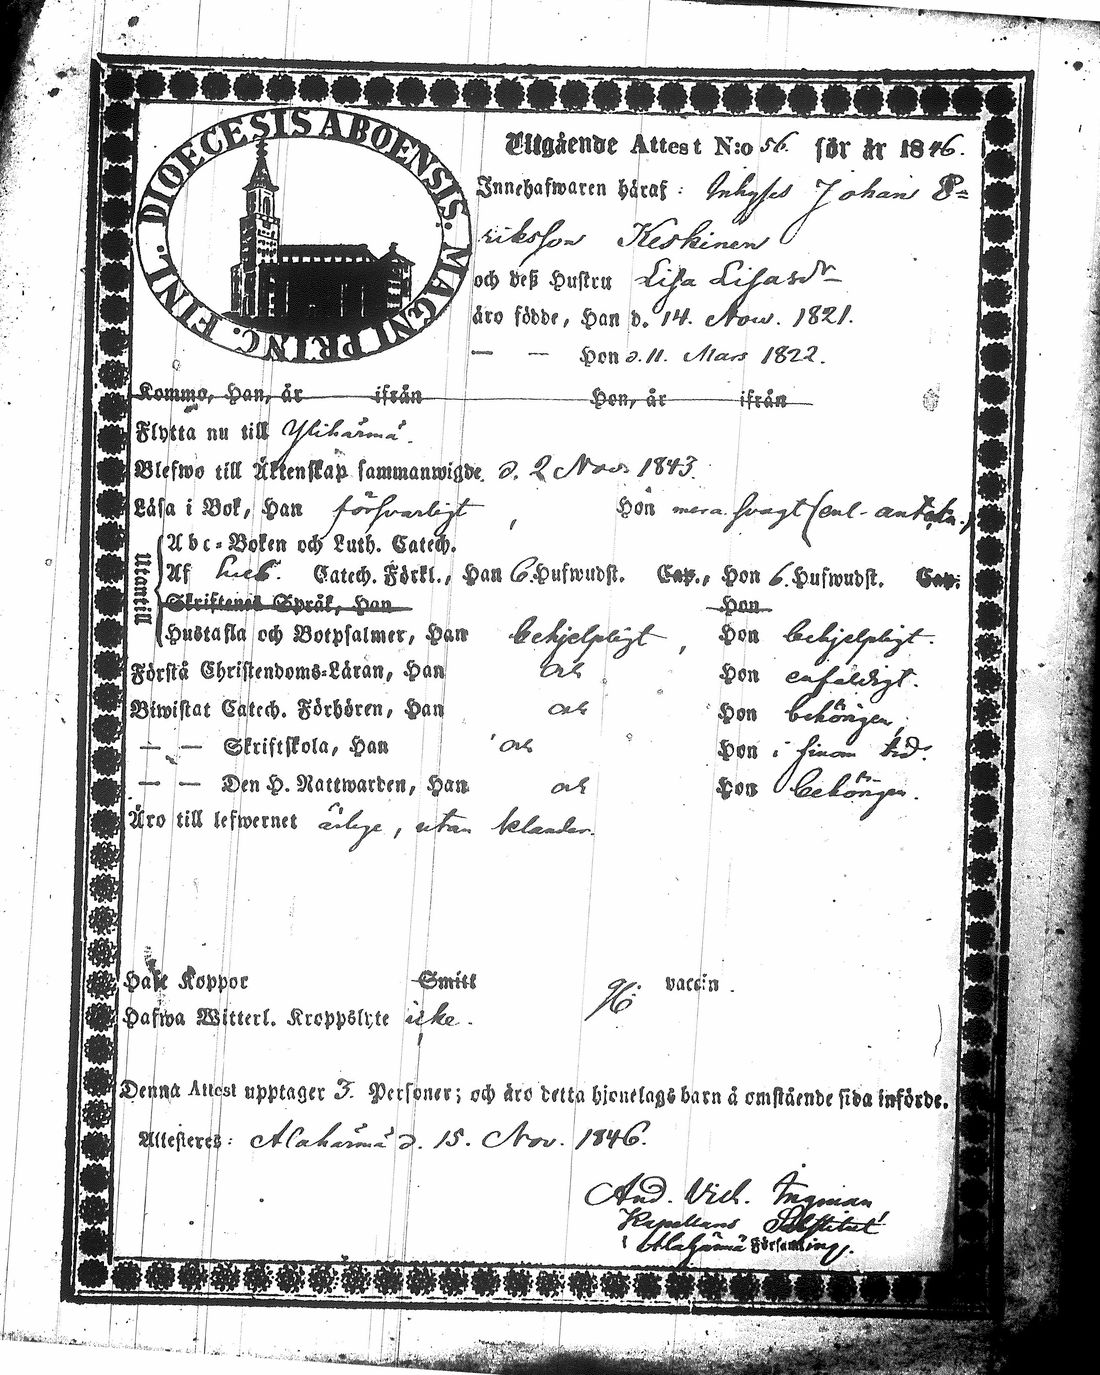 DIOECESIS ABOENSIS. MAGNI PRINC. FINL.
Utgående Attest N:o 56. för år 1846.
Innehafwaren häraf: Inhyses Johan E=
riksson Keskinen
och deß Hustru Lisa Lisasdr
äro födde, Han d. 14. Nov. 1821.
— — Hon d. 11. Mars 1822.
Kommo, Han, år ifrån Hon, år ifrån
Flytta nu till Ylihärmä.
Blefwo till Äktenskap sammanwigde d. 2 Nov. 1843.
Läsa i Bok, Han försvarligt, Hon mera svagt (enl. anteckn.)
Utantill
Abc=Boken och Luth. Catech.
Af Catech. Förkl., Han 6. Hufwudst. Cap., Hon 6. Hufwudst. Cap.
Skriftenes Språk, Han Hon
Hustafla och Botpsalmer, Han behjelpligt, Hon behjelpligt.
Förstå Christendoms=Läran, Han och Hon enfaldigt.
Biwistat Catech. Förhören, Han och Hon behörigen,
— — Skriftskola, Han och Hon i sinom tid.
— — Den H. Nattwarden, Han och Hon behörigen.
Äro till lefwernet ärlige, utan klander.
Haft Koppor Smitt vaccin.
Hafwa Witterl. Kroppslyte icke.
Denna Attest upptager 3. Personer; och äro detta hjonelags barn å omstående sida införde.
Attesteres: Alahärmä d. 15. Nov. 1846.
And. Vilh. Ingman
Kapellans Substitut
i Alahärmä Församling.